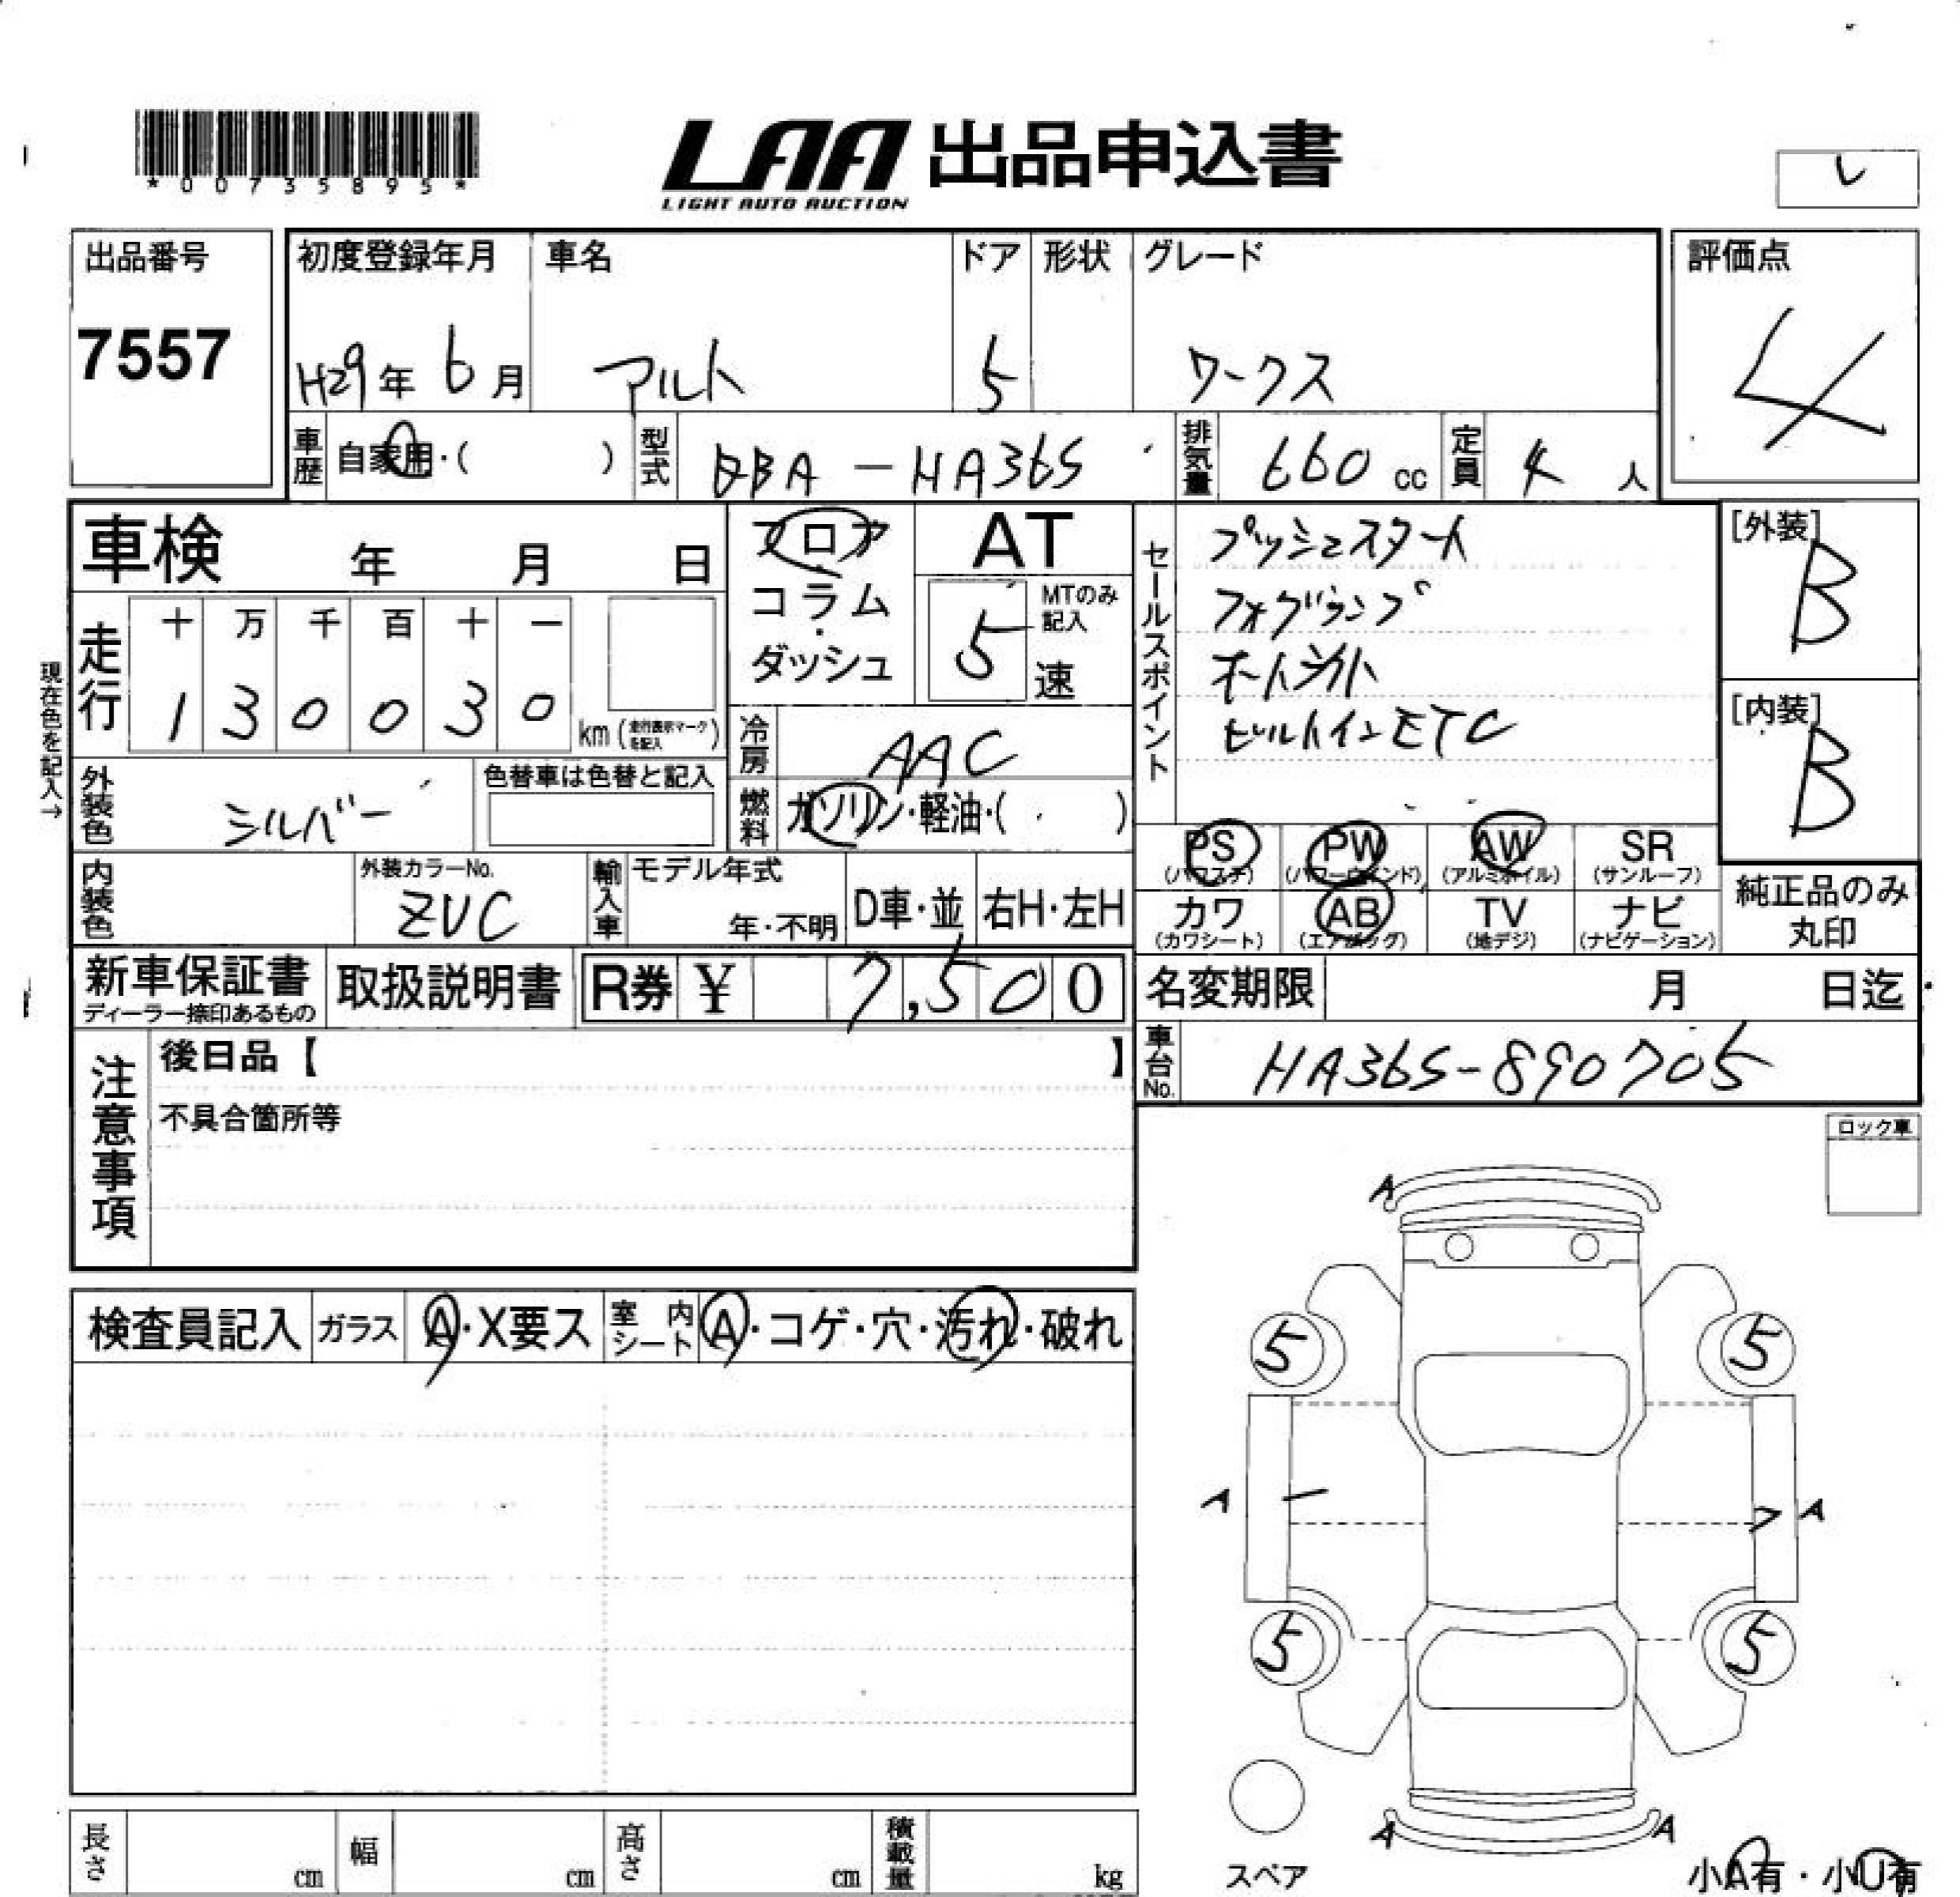 *00735895*
LAA 出品申込書
LIGHT AUTO AUCTION
レ
出品番号
7557
初度登録年月
H29年 6月
車名
アルト
ドア
5
形状
グレード
ワークス
評価点
4
車歴 自家用・( )
型式 DBA-HA36S
排気量 660 cc
定員 4 人
車検 年 月 日
フロア
・
コラム
・
ダッシュ
AT
5 速
MTのみ記入
セールスポイント
プッシュスタート
フォグランプ
オートライト
ビルトインETC
[外装]
B
[内装]
B
現在色を記入→
走行
十 万 千 百 十 一
1 3 0 0 3 0 km (走行表示マークを記入)
冷房 AAC
外装色 シルバー
色替車は色替と記入
燃料 ガソリン・軽油・( )
PS (パワステ)
PW (パワーウインド)
AW (アルミホイル)
SR (サンルーフ)
カワ (カワシート)
AB (エアバッグ)
TV (地デジ)
ナビ (ナビゲーション)
純正品のみ
丸印
内装色
外装カラーNo.
ZVC
輸入車
モデル年式
年・不明
D車・並
右H・左H
新車保証書
ディーラー捺印あるもの
取扱説明書
R券 ¥ 7,500
名変期限 月 日迄
車台No. HA36S-890705
注意事項
後日品【 】
不具合箇所等
ロック車
検査員記入 ガラス A・X要ス 室内シート A・コゲ・穴・汚れ・破れ
A
5 5
A A
5 5
A A
スペア
小A有・小U有
長さ cm 幅 cm 高さ cm 積載量 kg